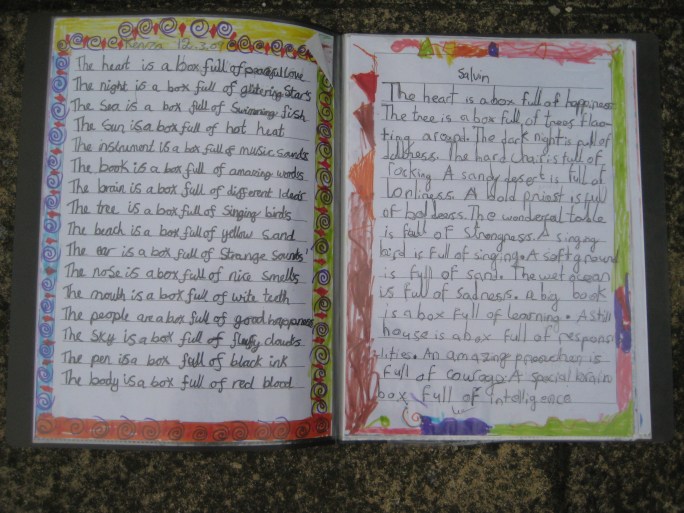 Kenza 12.3.07
The heart is a box full of peacefull love
The night is a box full of glittering stars
The sea is a box full of swimming fish
The sun is a box full of hot heat
The instrument is a box full of music sands
The book is a box full of amazing words
The brain is a box full of different Ideas
The tree is a box full of singing birds
The beach is a box full of yellow sand
The ear is a box full of strange sounds
The nose is a box full of nice smells
The mouth is a box full of wite teeth
The people are a box full of good happiness
The sky is a box full of flufy clouds
The pen is a box full of black ink
The body is a box full of red blood
Salvin
The heart is a box full of happiness
The tree is a box full of trees floa-
ting around. The dark night is full of
The hard chair is full of
rocking A sandy desert is full of
lonliness. A bold priest is full
of boldness. The wonderful table
is full of strongness. A singing
bird is full of singing. A soft ground
is full of sand. The wet ocean
is full of sadness. a big book
is a box full of learning. A still
house is a box full of respons
ilities. An amazing preacher is
full of courage. A special brain
box full of intelligence